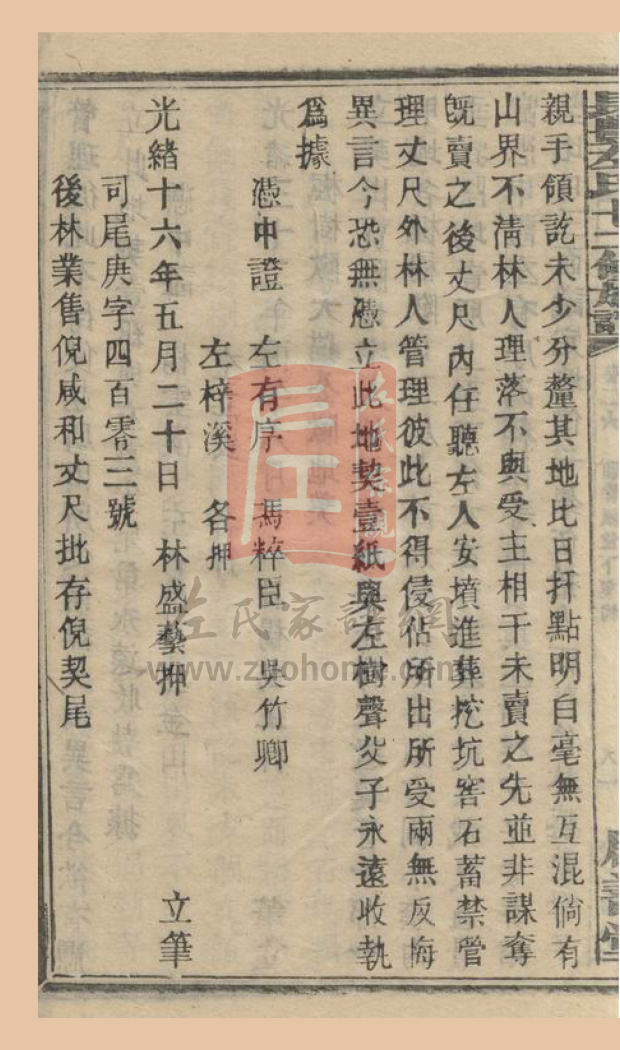 親手領訖未少分釐其地比日扦點明白毫無互混倘有
山界不清林人理落不與受主相干未賣之先並非謀奪
旣賣之後丈尺內任聽左人安墳進葬挖坑窖石蓄禁管
理丈尺外林人管理彼此不得侵佔所出所受兩無反悔
異言今恐無憑立此地契壹紙與左樹聲父子永遠收執
爲據
憑中證 左有序 馮粹臣 吳竹卿
左梓溪 各押
光緒十六年五月二十日 林盛藝押 立筆
司尾庚字四百零三號
後林業售倪咸和丈尺批存倪契尾
左氏家譜網
www.zuohome.com